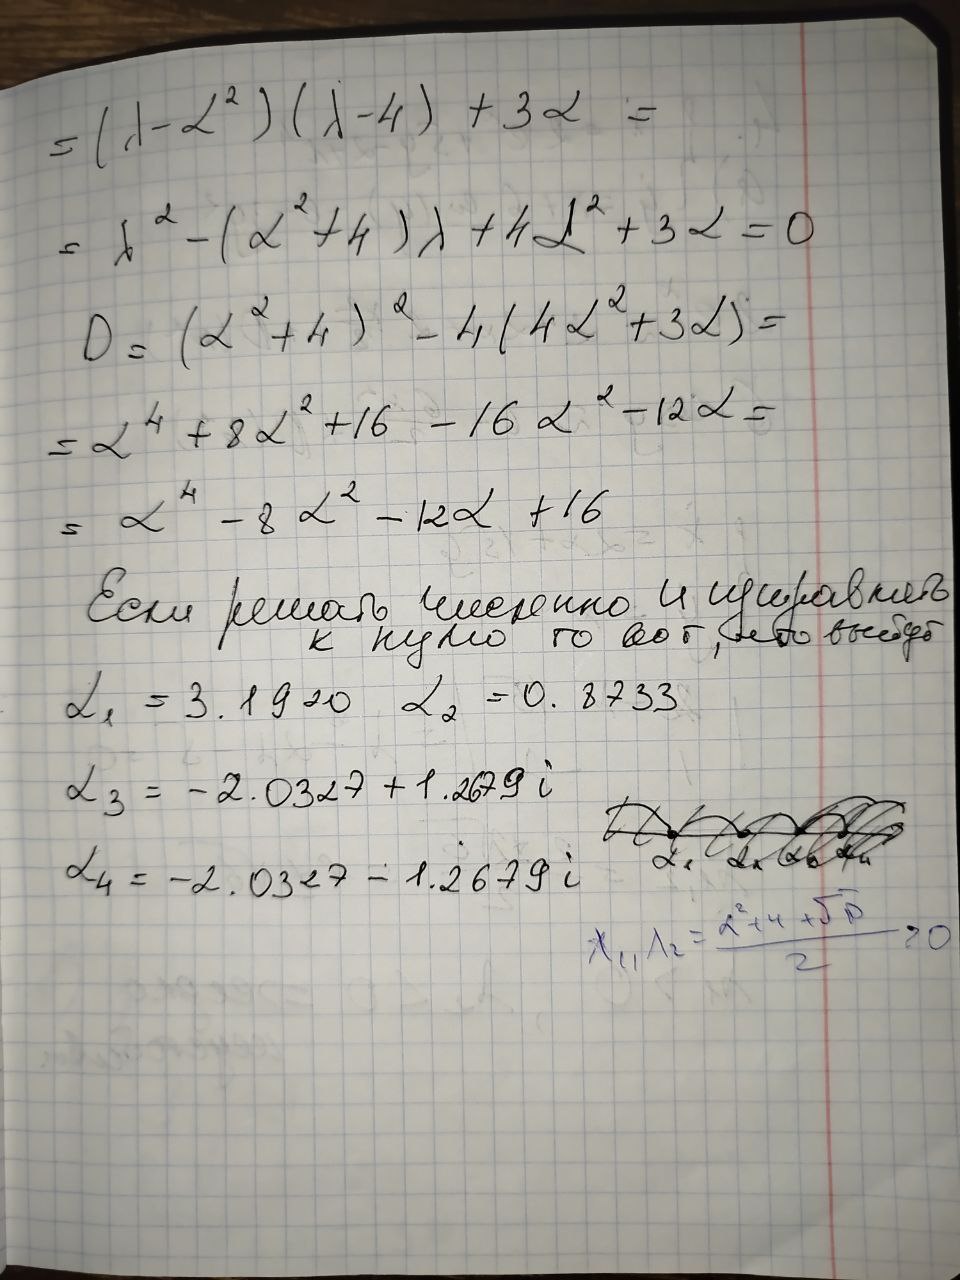 = (λ - α²)(λ - 4) + 3α =
= λ² - (α² + 4)λ + 4α² + 3α = 0
D = (α² + 4)² - 4(4α² + 3α) =
= α⁴ + 8α² + 16 - 16α² - 12α =
= α⁴ - 8α² - 12α + 16
Если решать численно и приравнять
к нулю то вот, что выйдет
α₁ = 3.1920 α₂ = 0.8733
α₃ = -2.0327 + 1.2679i
α₄ = -2.0327 - 1.2679i
α₁ α₂ α₃ α₄
λ₁, λ₂ = (α² + 4 + √D)/2 > 0